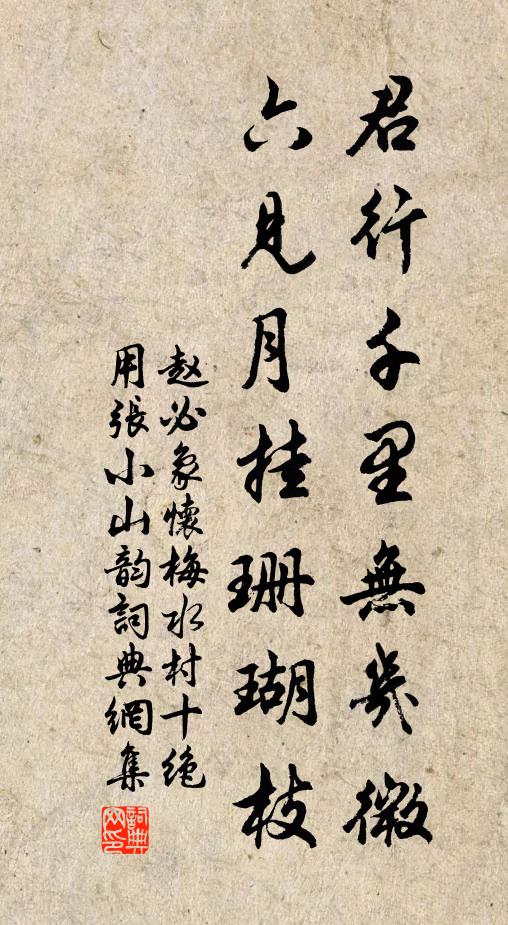 君行千里無幾微
六見月挂珊瑚枝
赵必象懷梅水村十绝
用張小山韵詞典網集
詞典
网印